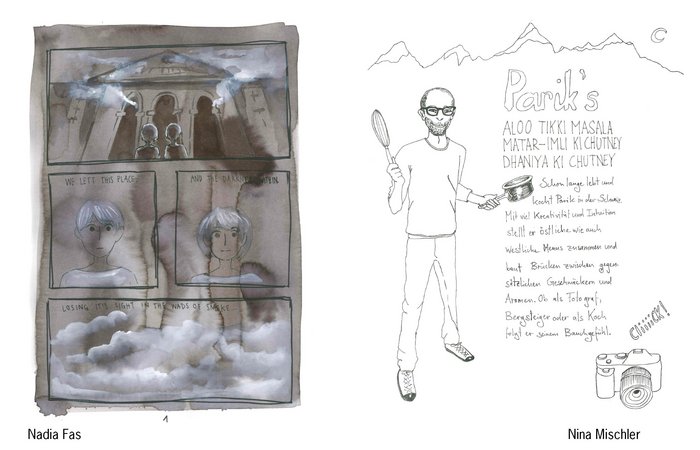 WE LEFT THIS PLACE
AND THE DARK
LOSING ITS LIGHT IN THE WADS OF SMOKE
1
Nadia Fas
Parik's
ALOO TIKKI MASALA
MATAR-IMLI KI CHUTNEY
DHANIYA KI CHUTNEY
Schon lange lebt und
kocht Parik in der Schweiz
Mit viel Kreativität und Intuition
stellt er östliche wie auch
westliche Menus zusammen und
baut Brücken zwischen gegen
sätzlichen Geschmäckern und
Aromen. Ob als Fotograf,
Bergsteiger oder als Koch
folgt er seinem Bauchgefühl.
Cliiick!
Nina Mischler